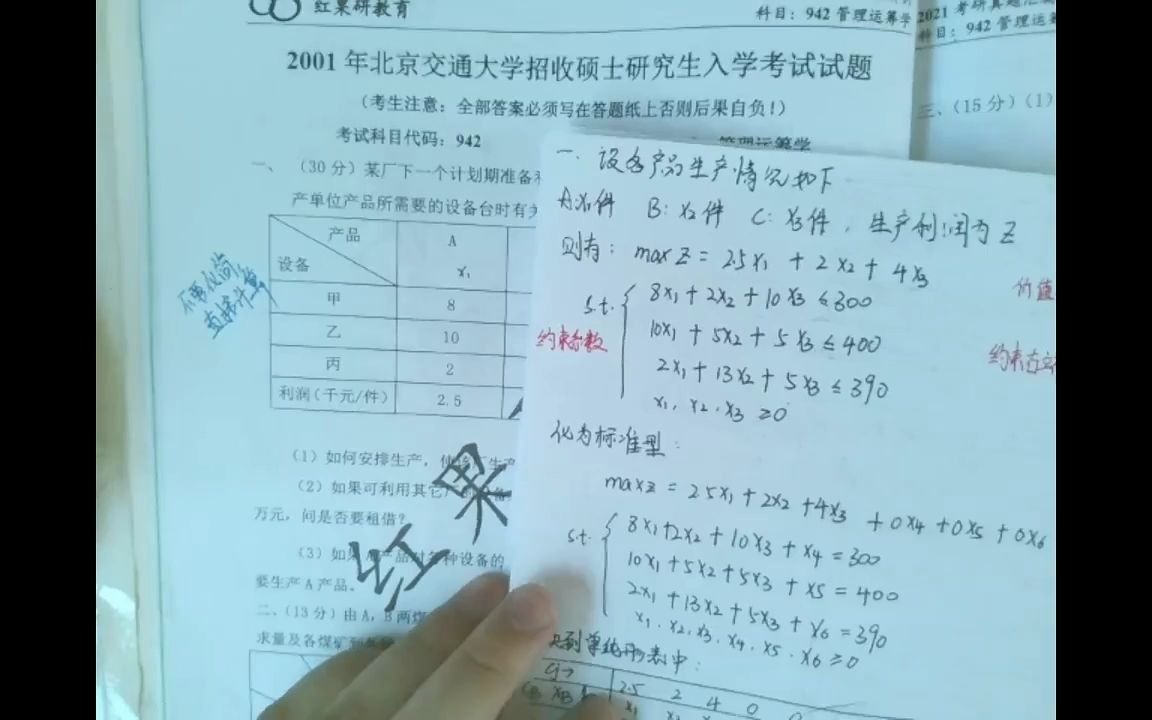 红果研教育
科目：942 管理运筹学
2021 考研真题汇
科目：942 管理运筹
2001 年北京交通大学招收硕士研究生入学考试试题
（考生注意：全部答案必须写在答题纸上否则后果自负！）
三、（15 分）（1）
考试科目代码：942
管理运筹学
一、（30 分）某厂下一个计划期准备
产单位产品所需要的设备台时有
产品 A
设备 x₁
甲 8
乙 10
丙 2
利润（千元/件） 2.5
直接计算
（1）如何安排生产，
（2）如果可利用其它
万元，问是否要租借？
（3）如果 产品对各种设备的
要生产 A 产品。
二、（13 分）由 A，B 两煤
求量及各煤矿
红果
一、设各产品生产情况如下
A:x₁件 B: x₂件 C: x₃件，生产利润为 Z
则有：max Z = 2.5x₁ + 2x₂ + 4x₃
价值
s.t. 8x₁ + 2x₂ + 10x₃ ≤ 300
约束系数 10x₁ + 5x₂ + 5x₃ ≤ 400
约束
2x₁ + 13x₂ + 5x₃ ≤ 390
x₁, x₂, x₃ ≥ 0
化为标准型：
max z = 2.5x₁ + 2x₂ + 4x₃ + 0x₄ + 0x₅ + 0x₆
s.t. 8x₁ + 2x₂ + 10x₃ + x₄ = 300
10x₁ + 5x₂ + 5x₃ + x₅ = 400
2x₁ + 13x₂ + 5x₃ + x₆ = 390
x₁, x₂, x₃, x₄, x₅, x₆ ≥ 0
列单纯形表中：
Cj→ 2.5 2 4 0
CB XB x₁